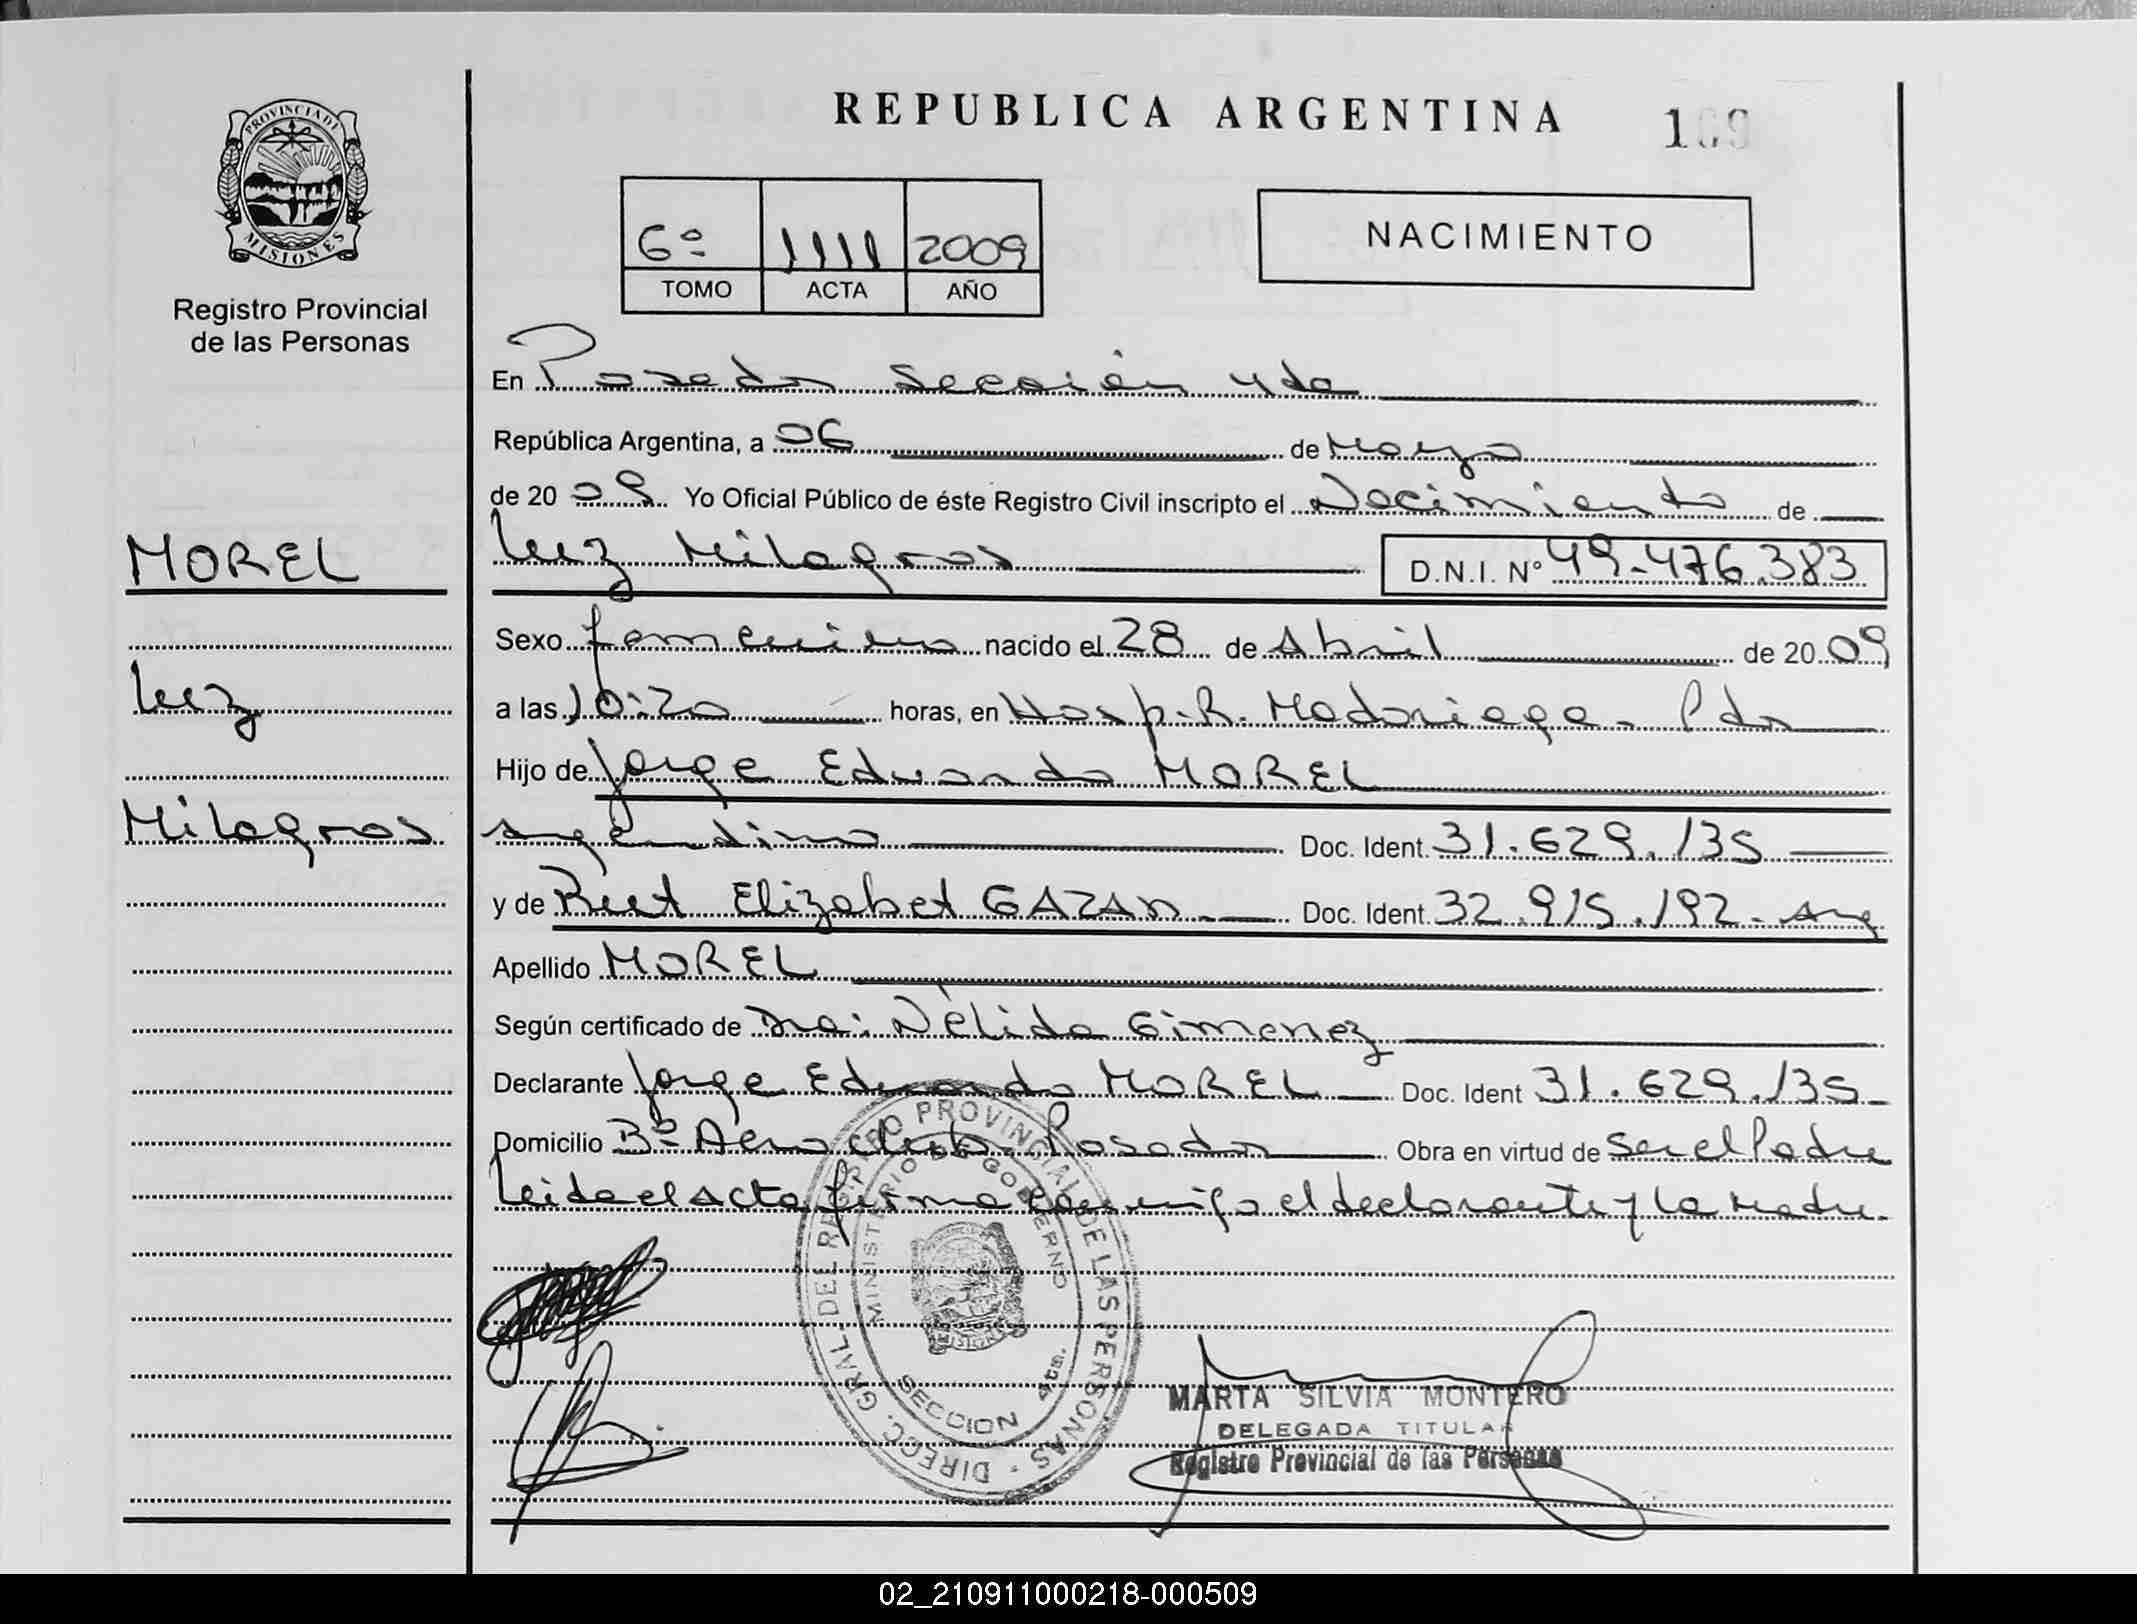 REPUBLICA ARGENTINA
PROVINCIA DE MISIONES
Registro Provincial
de las Personas
6º 1111 2009
TOMO ACTA AÑO
NACIMIENTO
En Posadas Sección 4da
República Argentina, a 06 de Mayo
de 20 09 Yo Oficial Público de éste Registro Civil inscripto el Nacimiento de
MOREL
Luz Milagros D.N.I. Nº 49.476.383
Sexo femenino nacido el 28 de Abril de 20 09
Luz
a las 10:20 horas, en Hosp. R. Madariaga - Pdas
Hijo de Jorge Eduardo MOREL
Milagros
argentino Doc. Ident. 31.629.135
y de Rut Elizabet GAZAN Doc. Ident. 32.915.192 - Arg
Apellido MOREL
Según certificado de Dra: Nélida Gimenez
Declarante Jorge Eduardo MOREL Doc. Ident 31.629.135
Domicilio Bº Aero club Posadas Obra en virtud de Ser el Padre
Leida el acta firma conmigo el declarante y la madre.
DIRECC. GRAL. DEL REGISTRO PROVINCIAL DE LAS PERSONAS
MINISTERIO DE GOBIERNO
SECCION 4ta.
MARTA SILVIA MONTERO
DELEGADA TITULAR
Registro Provincial de las Personas
02_210911000218-000509